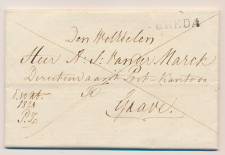 BREDA
Den WelEdelen
Heer A. S. van der Marck
Directeur aan 't Post Kantoor
Te
Grave